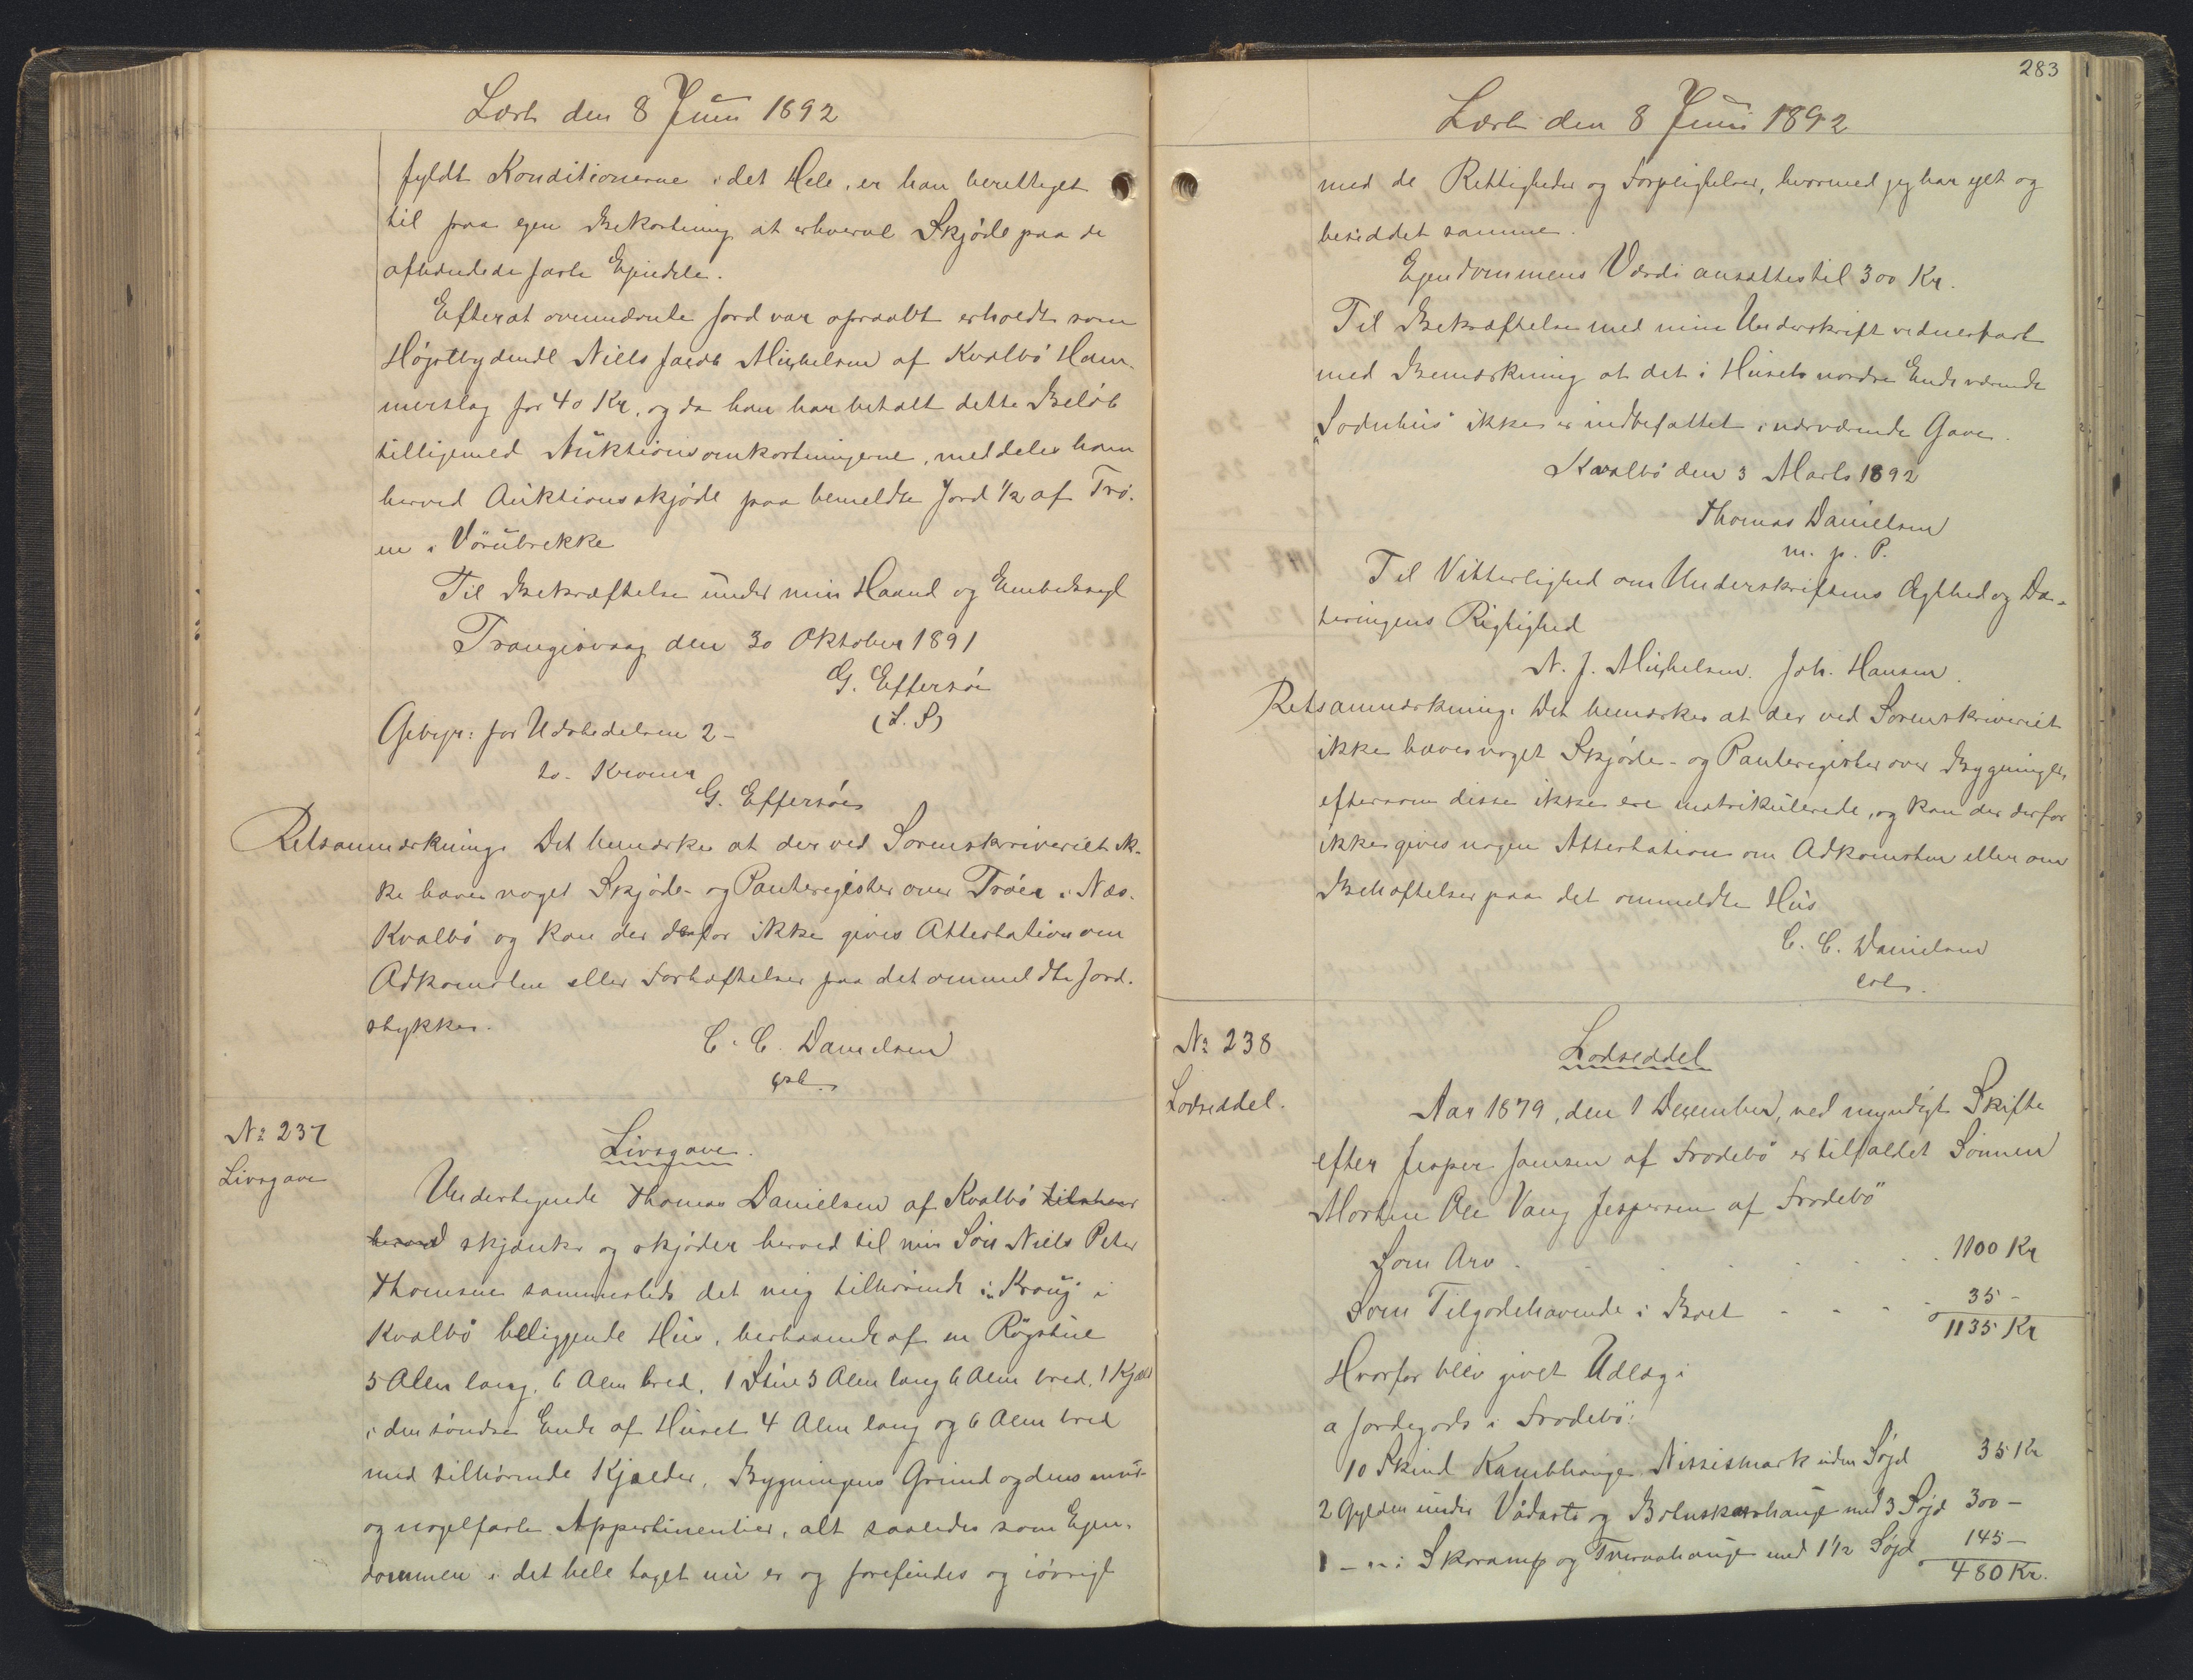 Læst den 8 Juni 1892
fyldt Konditionerne i det Hele, er han berettiget
til paa egen Bekostning at erhverve Skjöde paa de
afhændede faste Ejendele.
Efterat ovennævnte Jord var opraabt erholdt som
Højstbydende Niels Jacob Michelsen af Kvalbö Ham-
merslag for 40 Kr, og da han har betalt dette Beløb
tilligemed Auktionsomkostningerne, meddeles ham
herved Auktionsskjöde paa bemeldte Jord 1/2 af Trö-
en i Vörubrekke
Til Bekræftelse under min Haand og Embedssegl
Trangisvaag den 30 Oktober 1891
G. Effersöe
(L. S)
Gebyr: for Udstedelsen 2 -
to - Kroner
G. Effersöe
Retsanmærkning. Det bemærkes at der ved Sorenskriveriet ik-
ke haves noget Skjöde- og Panteregister over Tröer i Næs-
Kvalbö og kan der derfor ikke gives Attestation om
Adkomsten eller Forhæftelser paa det ommeldte Jord-
stykker.
C. C. Danielsen
cst.
No 237
Livsgave
Livsgave.
Undertegnede Thomas Danielsen af Kvalbö tilstaar
herved skjænker og skjöder herved til min Sön Niels Peter
Thomsen sammesteds det mig tilhörende i "Krauj" i
Kvalbö beliggende Hus, bestaaende af en Rögstue
5 Alen lang, 6 Alen bred, 1 Stue 3 Alen lang 6 Alen bred, 1 Kjæld
i den söndre Ende af Huset 4 Alen lang og 6 Alen bred
med tilhörende Kjælder, Bygningens Grund og dens mur-
og nagelfaste Appertinentier, alt saaledes som Ejen-
dommen i det hele taget nu er og forefindes og iövrigt
283
Læst den 8 Juni 1892
med de Rettigheder og Forpligtelser, hvormed jeg har ejet og
besiddet samme.
Ejendommens Værdi ansættes til 300 Kr.
Til Bekræftelse med min Underskrift vidnesfast
med Bemærkning at det i Husets nordre Ende værende
"Sodnhus" ikke er indbefattet i nærværende Gave.
Kvalbö den 3 Marts 1892
Thomas Danielsen
m. p. P.
Til Vitterlighed om Underskriftens Ægthed og Da-
teringens Rigtighed
N. J. Michelsen. Joh. Hansen.
Retsanmærkning. Det bemærkes at der ved Sorenskriveriet
ikke haves noget Skjöde- og Panteregister over Bygninger,
eftersom disse ikke ere matrikulerede, og kan der derfor
ikke gives nogen Attestation om Adkomsten eller om
Behæftelser paa det ommeldte Hus
C. C. Danielsen
cst.
No 238
Lodseddel.
Lodseddel
Aar 1879, den 1 December, ved myndigt Skifte
efter Jesper Joensen af Frodebö er tilfaldet Sönnen
Morten Ole Vang Jespersen af Frodebö
Som Arv . . . . . . 1100 Kr
Som Tilgodehavende i Boet - - - - 35 -
1135 Kr
Hvorfor blev givet Udlæg i
a Jordegods i Frodebö:
10 Skind Kambhauge Nissismark uden Söjd 35 Kr
2 Gylden under Vådarts og Bolnskarshauge med 3 Söjd 300 -
1 - " - i Skoramp og Tverraahauge med 1 1/2 Söjd 145 -
480 Kr.